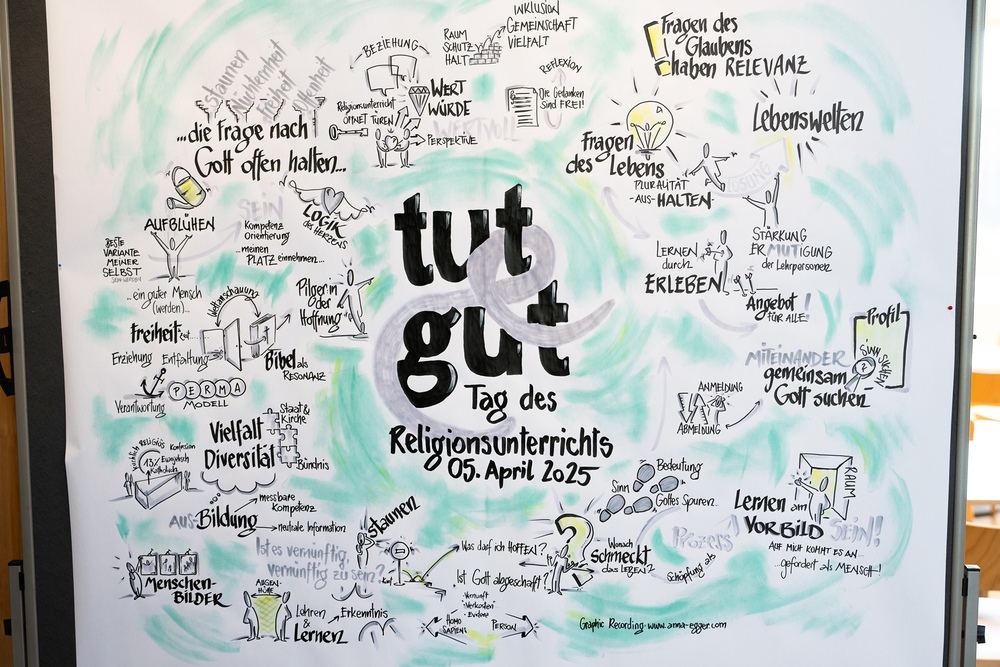 tut
&
gut
Tag des
Religionsunterrichts
05. April 2025
Staunen
...die Frage nach
Gott offen halten...
BEZIEHUNG
Religionsunterricht
ÖFFNET TÜREN
WERT
WÜRDE
WERTVOLL
PERSPEKTIVE
RAUM
SCHUTZ
HALT
INKLUSION
GEMEINSCHAFT
VIELFALT
REFLEXION
Die Gedanken
sind FREI!
Fragen des
Glaubens
haben RELEVANZ
Fragen
des Lebens
Lebenswelten
PLURALITÄT
-AUS-HALTEN-
LERNEN
durch
ERLEBEN
STÄRKUNG
ERMUTIGUNG
der Lehrpersonen
Angebot
FÜR ALLE!
Profil
SINN SUCHEN
MITEINANDER
gemeinsam
Gott suchen
ANMELDUNG
ABMELDUNG
AUFBLÜHEN
BESTE
VARIANTE
MEINER
SELBST
SEIN
LOGIK
des HERZENS
Kompetenz
Orientierung
...meinen
PLATZ einnehmen...
...ein guter Mensch
(werden)...
Weltanschauung
Pilger:in
der
Hoffnung
Freiheit
Erziehung
Entfaltung
Bibel als
RESONANZ
Verantwortung
PERMA
MODELL
Vielfalt
Diversität
Staat &
Kirche
Bündnis
Konfession
Evangelisch
Katholisch
AUS-Bildung
messbare
Kompetenz
neutrale Information
Menschen-
BILDER
Ist es vernünftig,
vernünftig zu sein?
AUGEN-
HÖHE
Lehren
&
Lernen
Erkenntnis
Staunen
Was darf ich HOFFEN?
Ist Gott abgeschafft?
·Vernunft
HOMO
SAPIENS
PERSON
Wonach
Schmeckt
das LEBEN?
Sinn
Bedeutung
Gottes Spuren
Prozess
Schöpfung als
Lernen am
VORBILD
RAUM
SEIN!
AUF MICH KOMMT ES AN...
...gefordert als MENSCH!
Graphic Recording · www.anna-egger.com